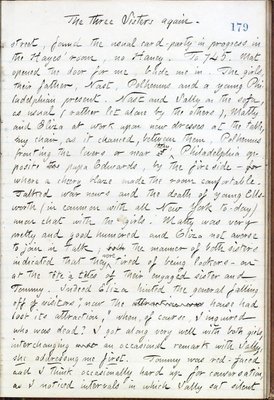 The three Sisters again.
179
street, found the usual card party in progress in
the Hayes' room, no Haney. To 745. Mat
opened the door for me & bade me in. The girls,
their father, Nast, Polhemus and a young Phi-
ladelphian present. Nast and Sally on the sofa,
as usual (rather let alone by the others), Matty
and Eliza at work upon new dresses at the table,
my chair, as it chanced, between them, Polhemus
fronting the lovers or near it, Philadelphia op-
posite papa Edwards, by the fire-side for
where a cheery blaze made the room comfortable.
Talked war news and the death of young Ells-
worth (in common with all New York to-day)
anon chat with the girls. Matty was very
pretty and good humored and Eliza not averse
to join in talk, the manner of both sisters
indicated that they tired of being lookers-on
at the tête a têtes of their engaged sister and
Tommy. Indeed Eliza hinted the general falling
off of visitors, "now the house had
lost its attraction," when, of course, I inquired
who was dead? I got along very well with both girls
interchanging an occasional remark with Sally,
she addressing me first. Tommy was red-faced
and I think occasionally hard up for conversation
as I noticed intervals in which Sally sat silent